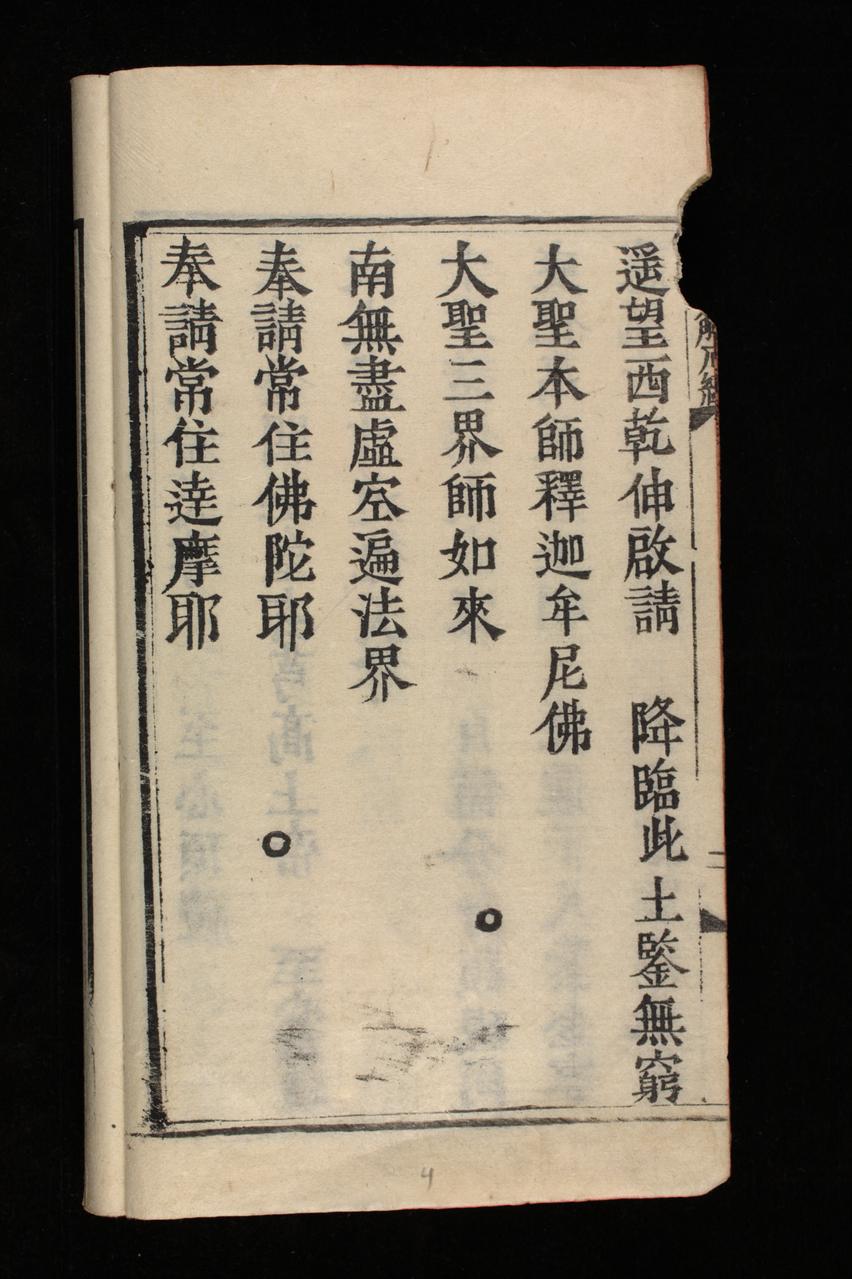 遥望西乾伸啟請　降臨此土鑒無窮
大聖本師釋迦牟尼佛
大聖三界師如來
南無盡虛空遍法界
奉請常住佛陀耶
奉請常住達摩耶
4